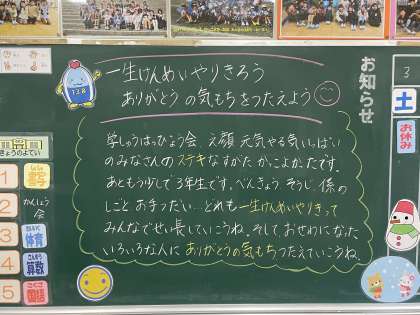 一生けんめいやりきろう
ありがとうの気もちをつたえよう
お知らせ
学しゅうはっぴょう会、え顔 元気 やる気 いっぱい
のみなさんのステキなすがた かっこよかったです。
あともう少しで3年生です。べんきょう そうじ 係の
しごと お手つだい…どれも一生けんめいやりきって
みんなでせい長していこうね。そして おせわになった
いろいろな人に ありがとうの気もちつたえていこうね。
きょうのよてい
1
2 かんしょう会
3 体育
4 さんすう 算数
5 こくご 国語
3
土
お休み